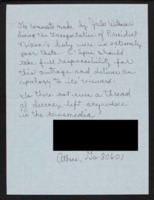 The comments made by
during the transportation of President
Nixon's body were in extremely
poor taste. C-Span should
take full responsibility for
this outrage and deliver an
apology to its viewers.
Is there not even a thread
of decency left anywhere
in the newsmedia?
Athens, Ga 30601